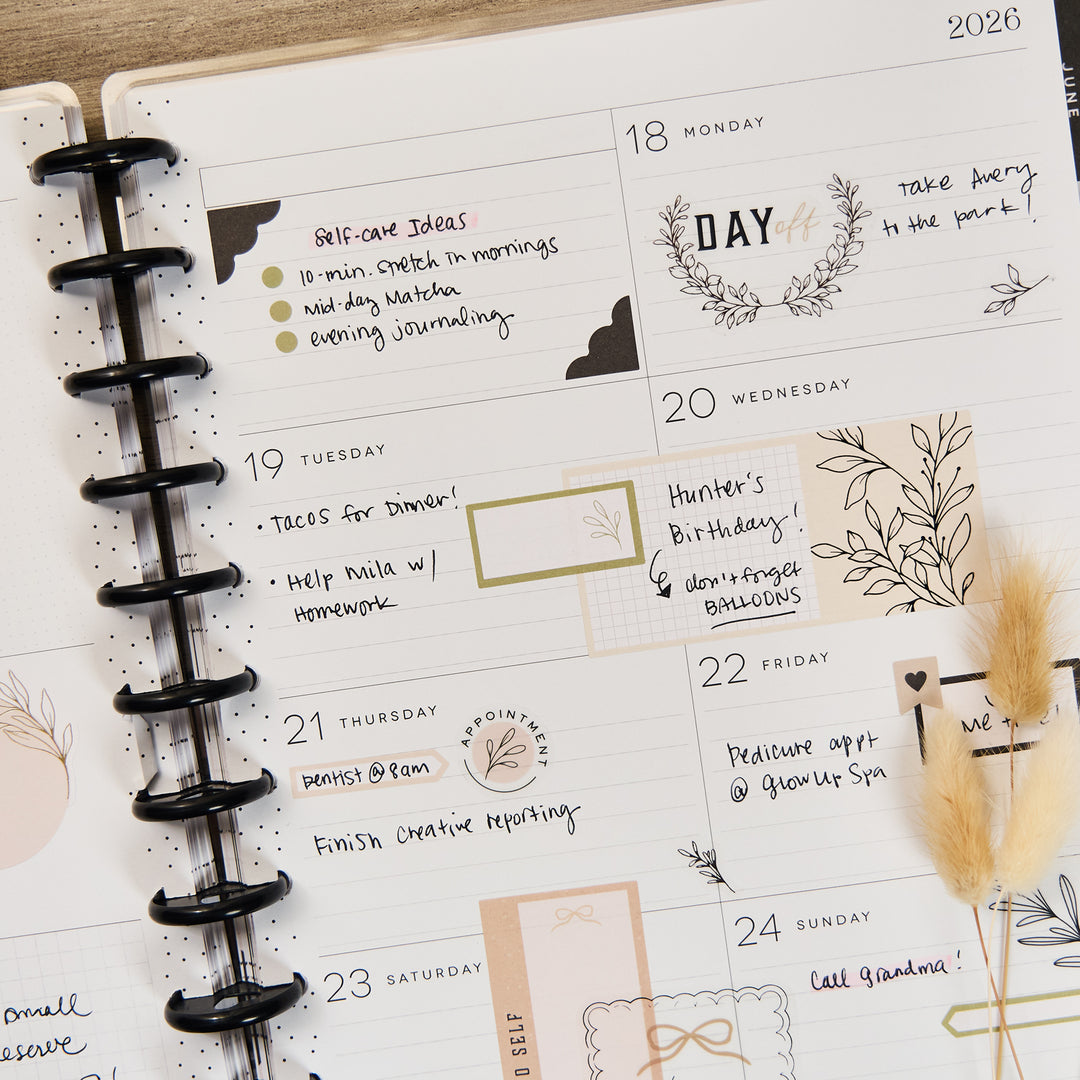 2026
JUNE
Self-care Ideas
10-min. stretch in mornings
Mid-day Matcha
evening journaling
18 MONDAY
DAY off
Take Avery
to the park!
19 TUESDAY
• Tacos for Dinner!
• Help Mila w/
Homework
20 WEDNESDAY
Hunter's
Birthday!
don't forget
BALLOONS
21 THURSDAY
APPOINTMENT
Dentist @ 8am
Finish Creative reporting
22 FRIDAY
Pedicure appt
@ GlowUp Spa
me
23 SATURDAY
SELF
24 SUNDAY
Call Grandma!
small